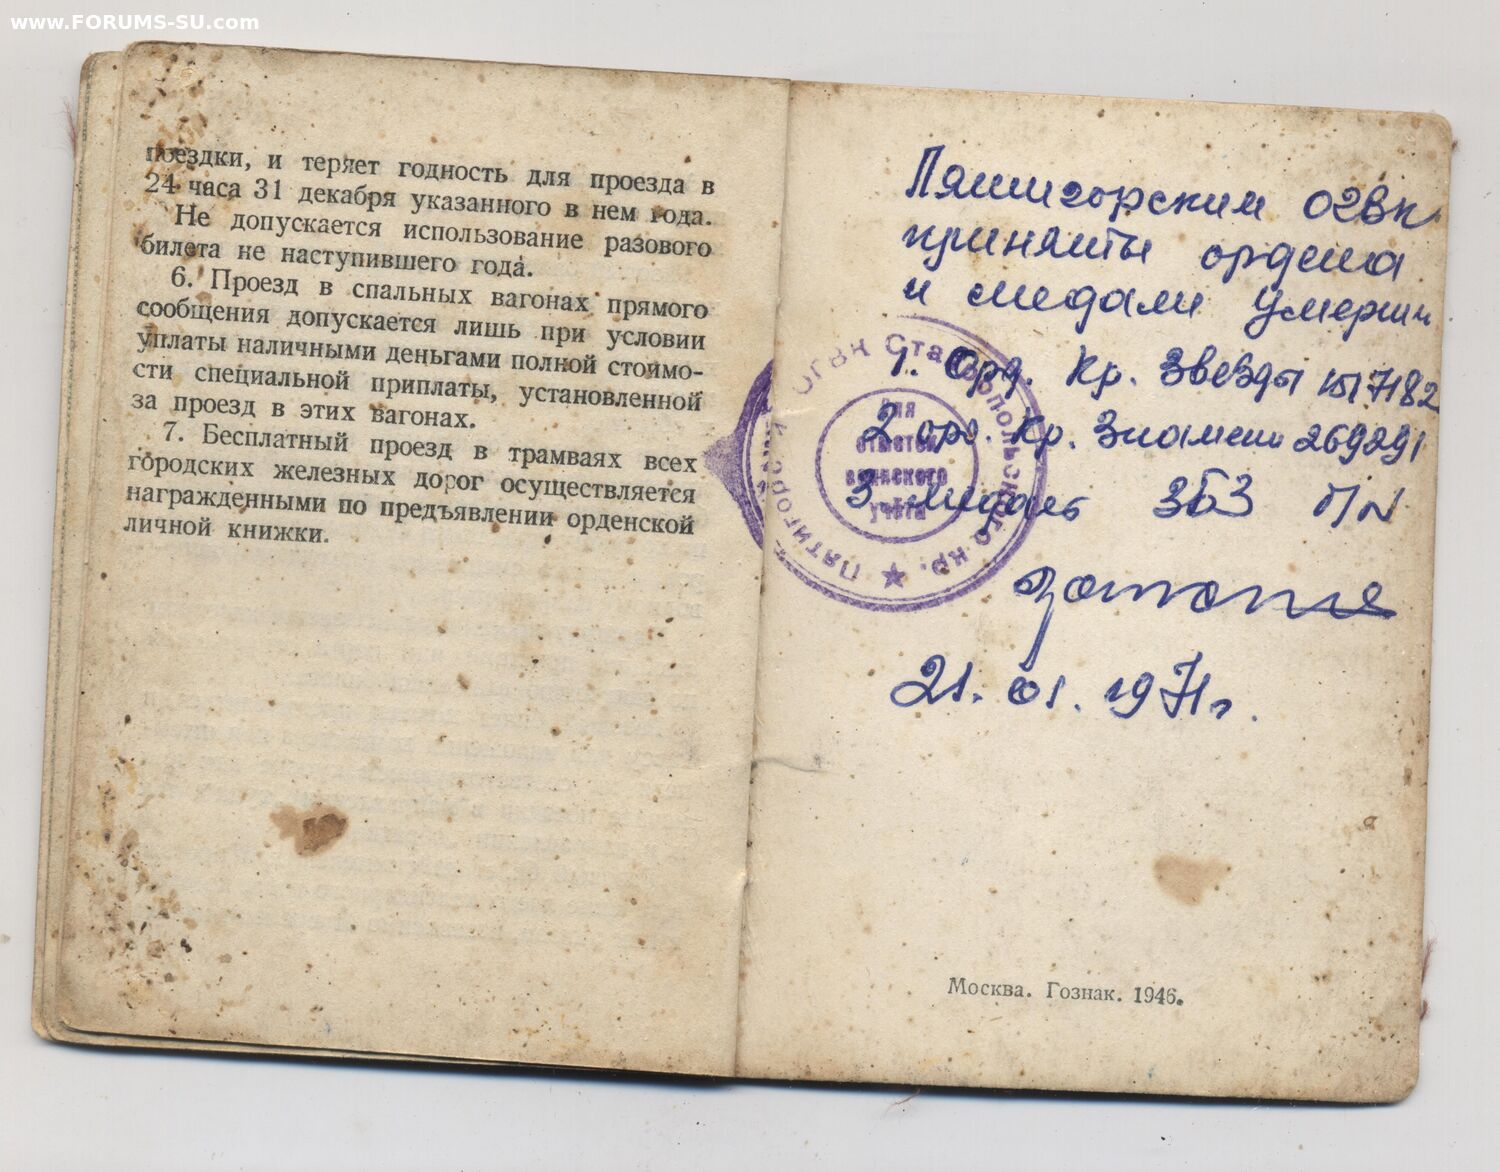 www.FORUMS-SU.com
поездки, и теряет годность для проезда в
24 часа 31 декабря указанного в нем года.
Не допускается использование разового
билета не наступившего года.
6. Проезд в спальных вагонах прямого
сообщения допускается лишь при условии
уплаты наличными деньгами полной стоимо-
сти специальной приплаты, установленной
за проезд в этих вагонах.
7. Бесплатный проезд в трамваях всех
городских железных дорог осуществляется
награжденными по предъявлении орденской
личной книжки.
Пятигорским ОГВК
приняты ордена
и медали умерши
1. Орд. Кр. Звезды 7182
2 орд. Кр. Знамени 269291
3 медаль ЗБЗ
21.01.1971г.
Пятигорский Ставропольского кр.
Для
отметок
воинского
учёта
Москва. Гознак. 1946.